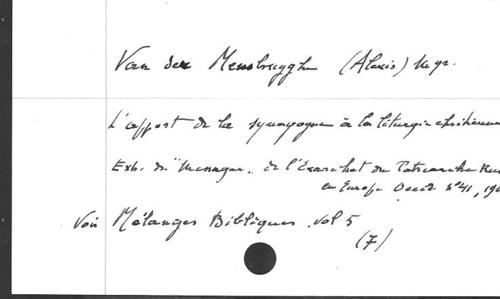 Van der Mensbrugghe (Alexis) Mgr.
L'apport de la synagogue à la liturgie chrétienne
Extr. du "Messager" de l'Exarchat du Patriarche Rus
en Europe Occid. n° 41, 196
Voir Mélanges Bibliques vol 5
(7)